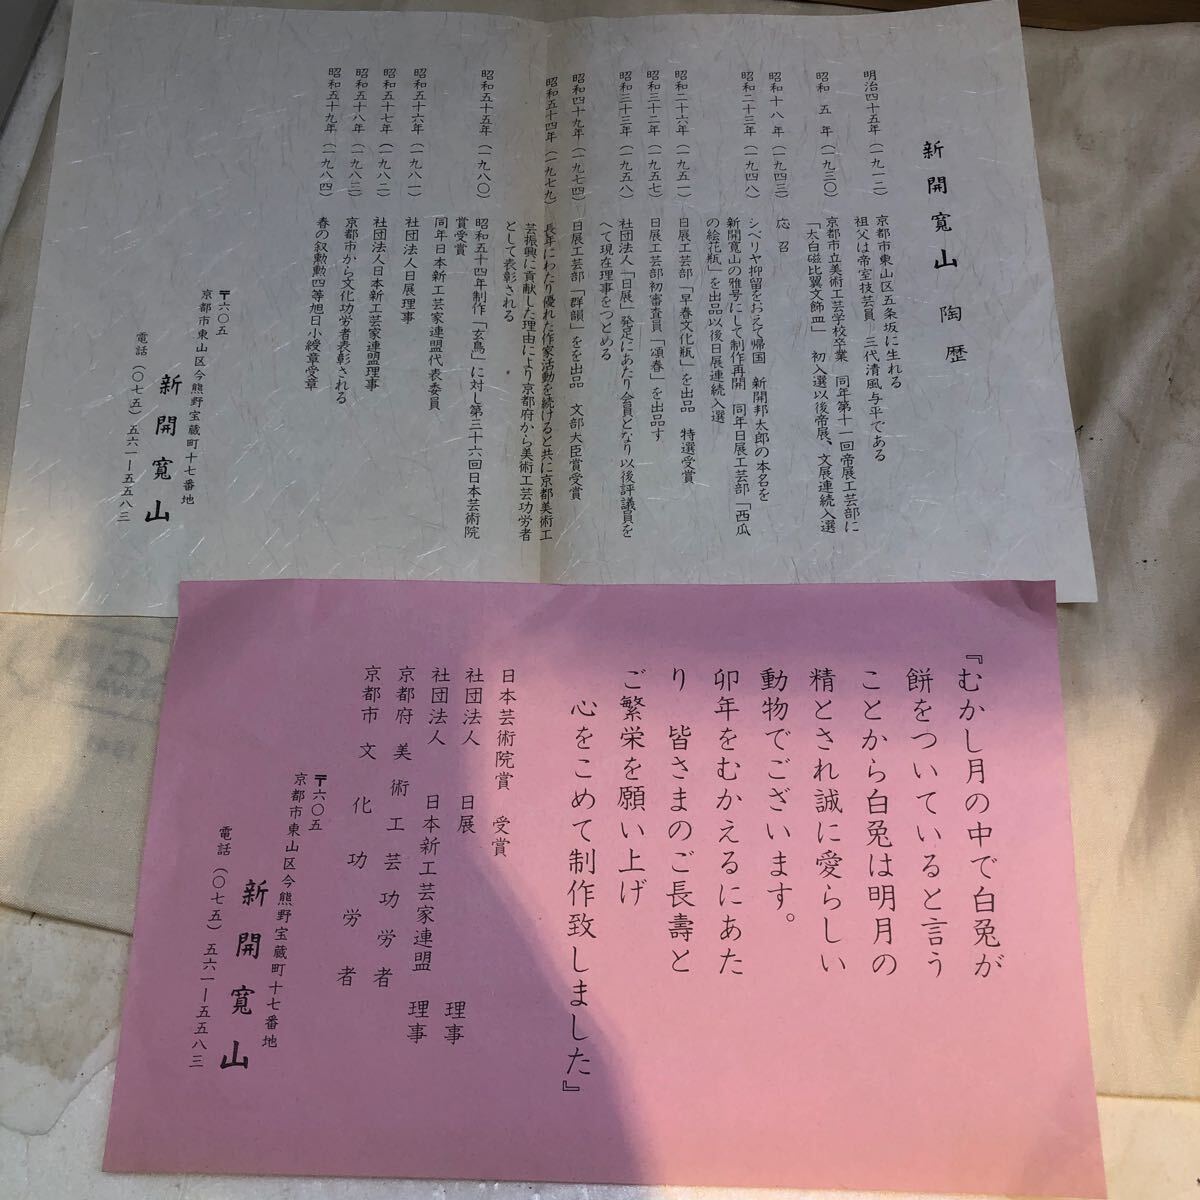 新開寛山 陶歴
明治四十五年(一九一二)
京都市東山区五条坂に生れる
祖父は帝室技芸員 三代清風与平である
昭和 五 年(一九三〇)
京都市立美術工芸学校卒業 同年第十一回帝展工芸部に
「太白磁比翼文飾皿」 初入選以後帝展、文展連続入選
昭和十八年(一九四三)
応 召
昭和二十三年(一九四八)
シベリヤ抑留をおえて帰国 新開邦太郎の本名を
新開寛山の雅号にして制作再開 同年日展工芸部「西瓜
の絵花瓶」を出品以後日展連続入選
昭和二十六年(一九五一)
日展工芸部「早春文化瓶」を出品 特選受賞
昭和三十二年(一九五七)
日展工芸部初審査員「頌春」を出品す
昭和三十三年(一九五八)
社団法人「日展」発足にあたり会員となり以後評議員を
へて現在理事をつとめる
昭和四十九年(一九七四)
日展工芸部「群韻」をを出品 文部大臣賞受賞
昭和五十四年(一九七九)
長年にわたり優れた作家活動を続けると共に京都美術工
芸振興に貢献した理由により京都府から美術工芸功労者
として表彰される
昭和五十五年(一九八〇)
昭和五十四年制作「玄鳥」に対し第三十六回日本芸術院
賞受賞
同年日本新工芸家連盟代表委員
昭和五十六年(一九八一)
社団法人日展理事
昭和五十七年(一九八二)
社団法人日本新工芸家連盟理事
昭和五十八年(一九八三)
京都市から文化功労者表彰される
昭和五十九年(一九八四)
春の叙勲勲四等旭日小綬章受章
〒六〇五
京都市東山区今熊野宝蔵町十七番地
新開寛山
電話(〇七五)五六一ー五五八三
『むかし月の中で白兎が
餅をついていると言う
ことから白兎は明月の
精とされ誠に愛らしい
動物でございます。
卯年をむかえるにあた
り 皆さまのご長壽と
ご繁栄を願い上げ
心をこめて制作致しました』
日本芸術院賞 受賞
社団法人 日展 理事
社団法人 日本新工芸家連盟 理事
京都府美術工芸功労者
京都市文化功労者
〒六〇五
京都市東山区今熊野宝蔵町十七番地
新開寛山
電話(〇七五)五六一ー五五八三